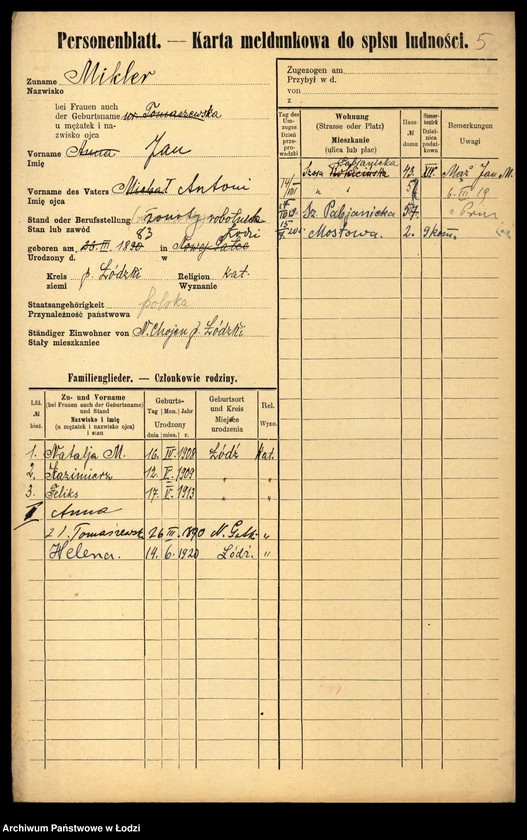 Personenblatt. — Karta meldunkowa do spisu ludności. 5
Zuname
Nazwisko
Mikler
bei Frauen auch
der Geburtsname
u mężatek i na-
zwisko ojca
Tomaszewska
Vorname
Imię
Anna Jan
Vorname des Vaters
Imię ojca
Michał Antoni
Stand oder Berufsstellung
Stan lub zawód
żonaty robotnik
83 Łodzi
geboren am III. 1890 in
Urodzony d. w
Kreis
ziemi
p. Łódzki
Religion
Wyznanie
kat.
Staatsangehörigkeit
Przynależność państwowa
polska
Ständiger Einwohner von
Stały mieszkaniec
N. Chojen p. Łódzki
Zugezogen am
Przybył w d.
von
z
Tag des Um-
zuges
Dzień
prze-
prowadzki
Wohnung
(Strasse oder Platz)
Mieszkanie
(ulica lub plac)
Haus-
№
domu
Steuer-
bezirk
Dzielnica
podat-
kowa
Bemerkungen
Uwagi
Szosa Pabjanicka 43. XIV. Mąż Jan M.
" " 6-III 19
Sz. Pabjanicka 57.
Mostowa. 2. 9 kom.
Familienglieder. — Członkowie rodziny.
Lfd.
№
bież.
Zu- und Vorname
(bei Frauen auch der Geburtsname)
und Stand
Nazwisko i imię
(u mężatek i nazwisko ojca)
i stan
Geburts-
Tag Mon. Jahr
Urodzony
dnia mies. r.
Geburtsort
und Kreis
Miejsce
urodzenia
Rel.
Wyzn.
1. Natalja M. 16. III. 1908 Łódź Kat.
2. Kazimierz 12. V. 1909 " "
3. Feliks 17. V. 1913 " "
Anna
z d. Tomaszewsk. 26 III. 1890 N. "
Helena. 19. 6. 1920 Łódź. "
Archiwum Państwowe w Łodzi